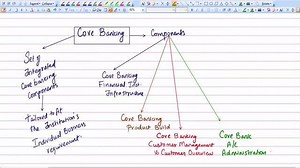 Core Banking
Components
Set of
Integrated
Core banking
Components
Tailored to fit
the institution's
Individual Business
requirement
Core Banking
Financial Inst.
Infrastructure
Core Banking
Product Build
Core Banking
Customer Management
& Customer Overview
Core Bank
A/c
Administration